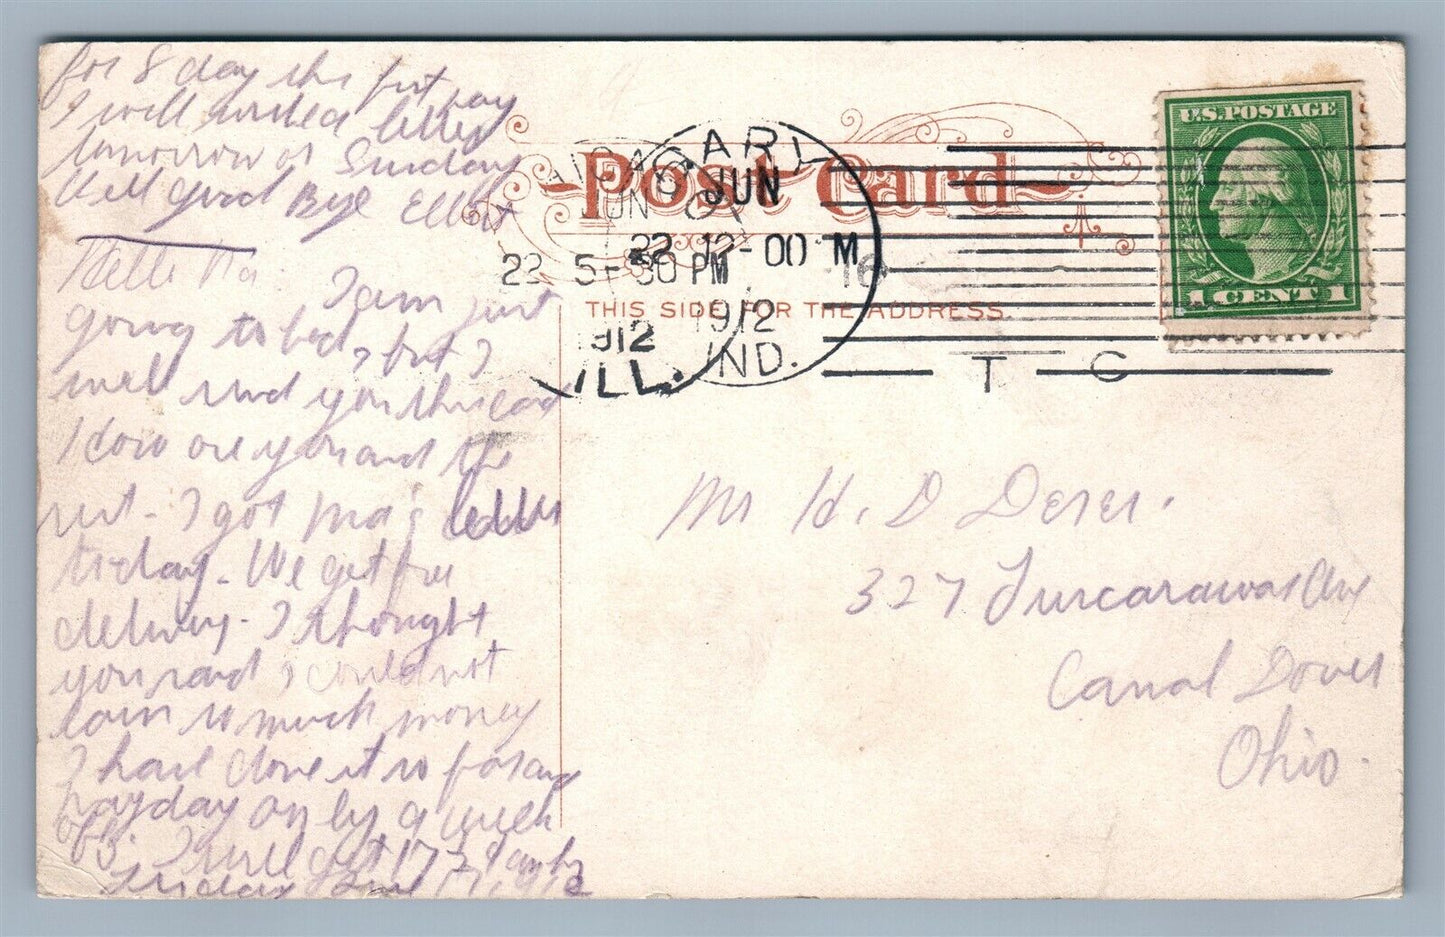 for 8 day the first pay
I will write a letter
tomorrow or Sunday
Well good Bye Elliot
Hello Pa. I am just
going to bed, but I
will send you this card
I dow owe you and the
rest - I got ma's letter
today - We get free
delivery - I thought
you said I could not
earn so much money
I have done it so far and
payday only a week
off. I will get 17
Friday 1912
POST CARD
THIS SIDE FOR THE ADDRESS
U.S. POSTAGE
1 CENT 1
GARY
JUN
22 12-00 M
1912
IND.
CHICAGO
JUN
22 5-30 PM
1912
ILL.
16
T G
Mr H. D Deser.
327 Tuscarawas Ave
Canal Dover
Ohio.